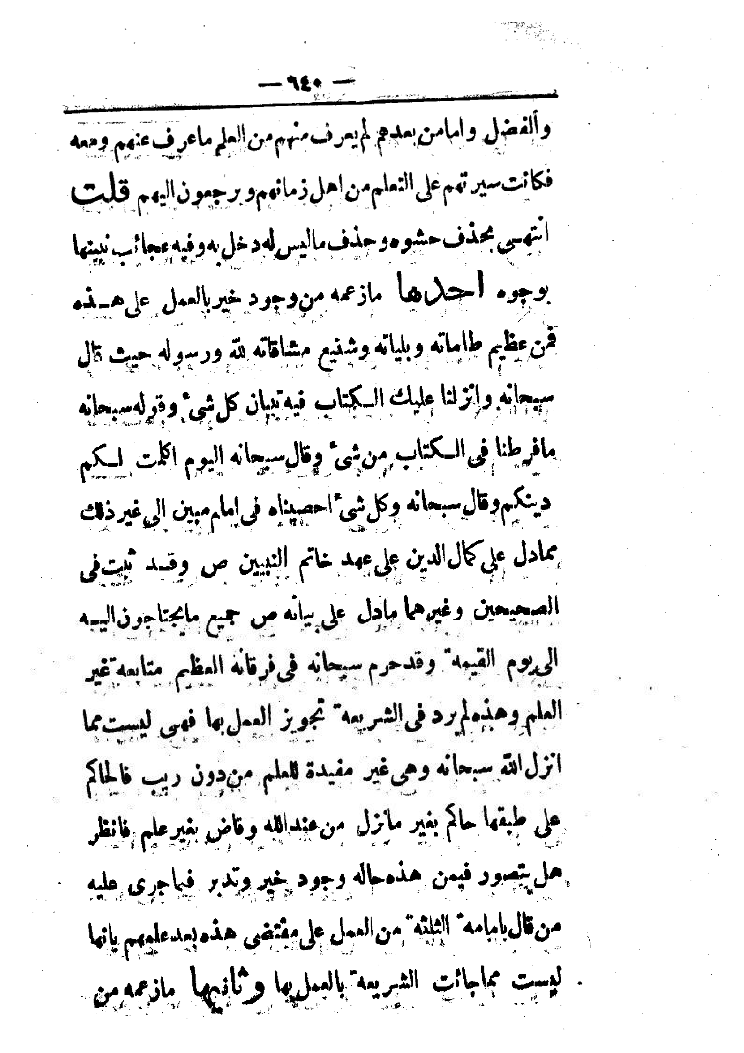 — ٦٤٠ —
والفضل وامامن بعدهم لم يعرف منهم من العلم ماعرف عنهم ومعه
فكانت سيرتهم على التعلم من اهل زمانهم ويرجعون اليهم قلت
انتهى بحذف حشوه وحذف ماليس له دخل به وفيه عجائب نبينها
بوجوه احدها مازعمه من وجود خير بالعمل على هذه
فمن عظيم طاماته وبلياته وشنيع مشاقاته لله ورسوله حيث قال
سبحانه وانزلنا عليك الكتاب فيه تبيان كل شئ وقوله سبحانه
مافرطنا فى الكتاب من شئ وقال سبحانه اليوم اكملت لكم
دينكم وقال سبحانه وكل شئ احصيناه فى امام مبين الى غير ذلك
ممادل على كمال الدين على عهد خاتم النبيين ص وقد ثبت فى
الصحيحين وغيرهما مادل على بيانه ص جميع مايحتاجون اليه
الى يوم القيمة وقد حرم سبحانه فى فرقانه العظيم متابعة غير
العلم وهذه لم يرد فى الشريعة تجويز العمل بها فهى ليست مما
انزل الله سبحانه وهى غير مفيدة للعلم من دون ريب فالحاكم
على طبقها حاكم بغير مانزل من عند الله وقاض بغير علم فانظر
هل يتصور فيمن هذه حاله وجود خير وتدبر فيما جرى عليه
من قال بامامة الثلثة من العمل على مقتضى هذه بعد علمهم بانها
ليست مماجائت الشريعة بالعمل بها وثانيها مازعمه من